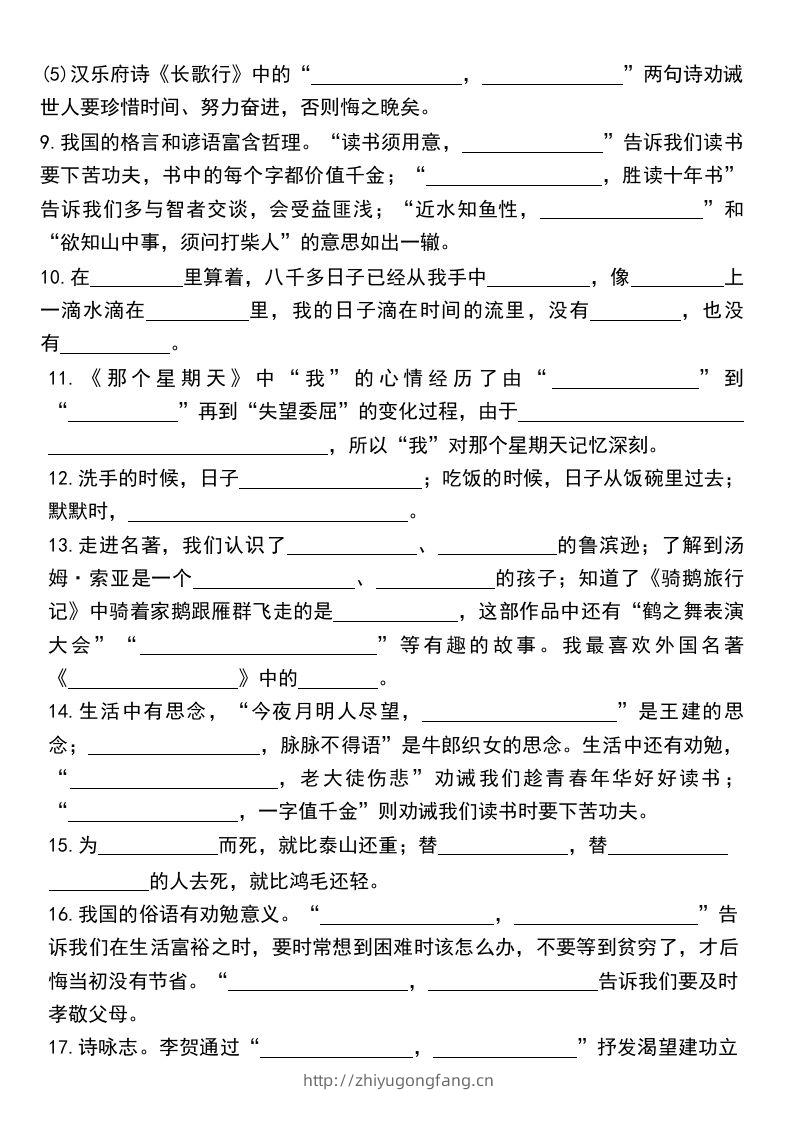 (5)汉乐府诗《长歌行》中的“______________，______________”两句诗劝诫
世人要珍惜时间、努力奋进，否则悔之晚矣。
9.我国的格言和谚语富含哲理。“读书须用意，______________”告诉我们读书
要下苦功夫，书中的每个字都价值千金；“________________，胜读十年书”
告诉我们多与智者交谈，会受益匪浅；“近水知鱼性，________________”和
“欲知山中事，须问打柴人”的意思如出一辙。
10.在_________里算着，八千多日子已经从我手中__________，像_________上
一滴水滴在__________里，我的日子滴在时间的流里，没有_________，也没
有___________。
11.《那个星期天》中“我”的心情经历了由“______________”到
“___________”再到“失望委屈”的变化过程，由于______________________
___________________________，所以“我”对那个星期天记忆深刻。
12.洗手的时候，日子__________________；吃饭的时候，日子从饭碗里过去；
默默时，___________________________。
13.走进名著，我们认识了_____________、____________的鲁滨逊；了解到汤
姆·索亚是一个________________、____________的孩子；知道了《骑鹅旅行
记》中骑着家鹅跟雁群飞走的是____________，这部作品中还有“鹤之舞表演
大会”“_______________________”等有趣的故事。我最喜欢外国名著
《_________________》中的________。
14.生活中有思念，“今夜月明人尽望，___________________”是王建的思
念；_________________，脉脉不得语”是牛郎织女的思念。生活中还有劝勉，
“____________________，老大徒伤悲”劝诫我们趁青春年华好好读书；
“_________________，一字值千金”则劝诫我们读书时要下苦功夫。
15.为____________而死，就比泰山还重；替_____________，替____________
__________的人去死，就比鸿毛还轻。
16.我国的俗语有劝勉意义。“_________________，__________________”告
诉我们在生活富裕之时，要时常想到困难时该怎么办，不要等到贫穷了，才后
悔当初没有节省。“__________________，_________________告诉我们要及时
孝敬父母。
17.诗咏志。李贺通过“_______________，______________”抒发渴望建功立
http://zhiyugongfang.cn